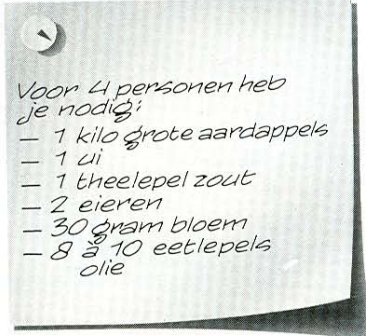 Voor 4 personen heb
je nodig:
– 1 kilo grote aardappels
– 1 ui
– 1 theelepel zout
– 2 eieren
– 30 gram bloem
– 8 à 10 eetlepels
olie